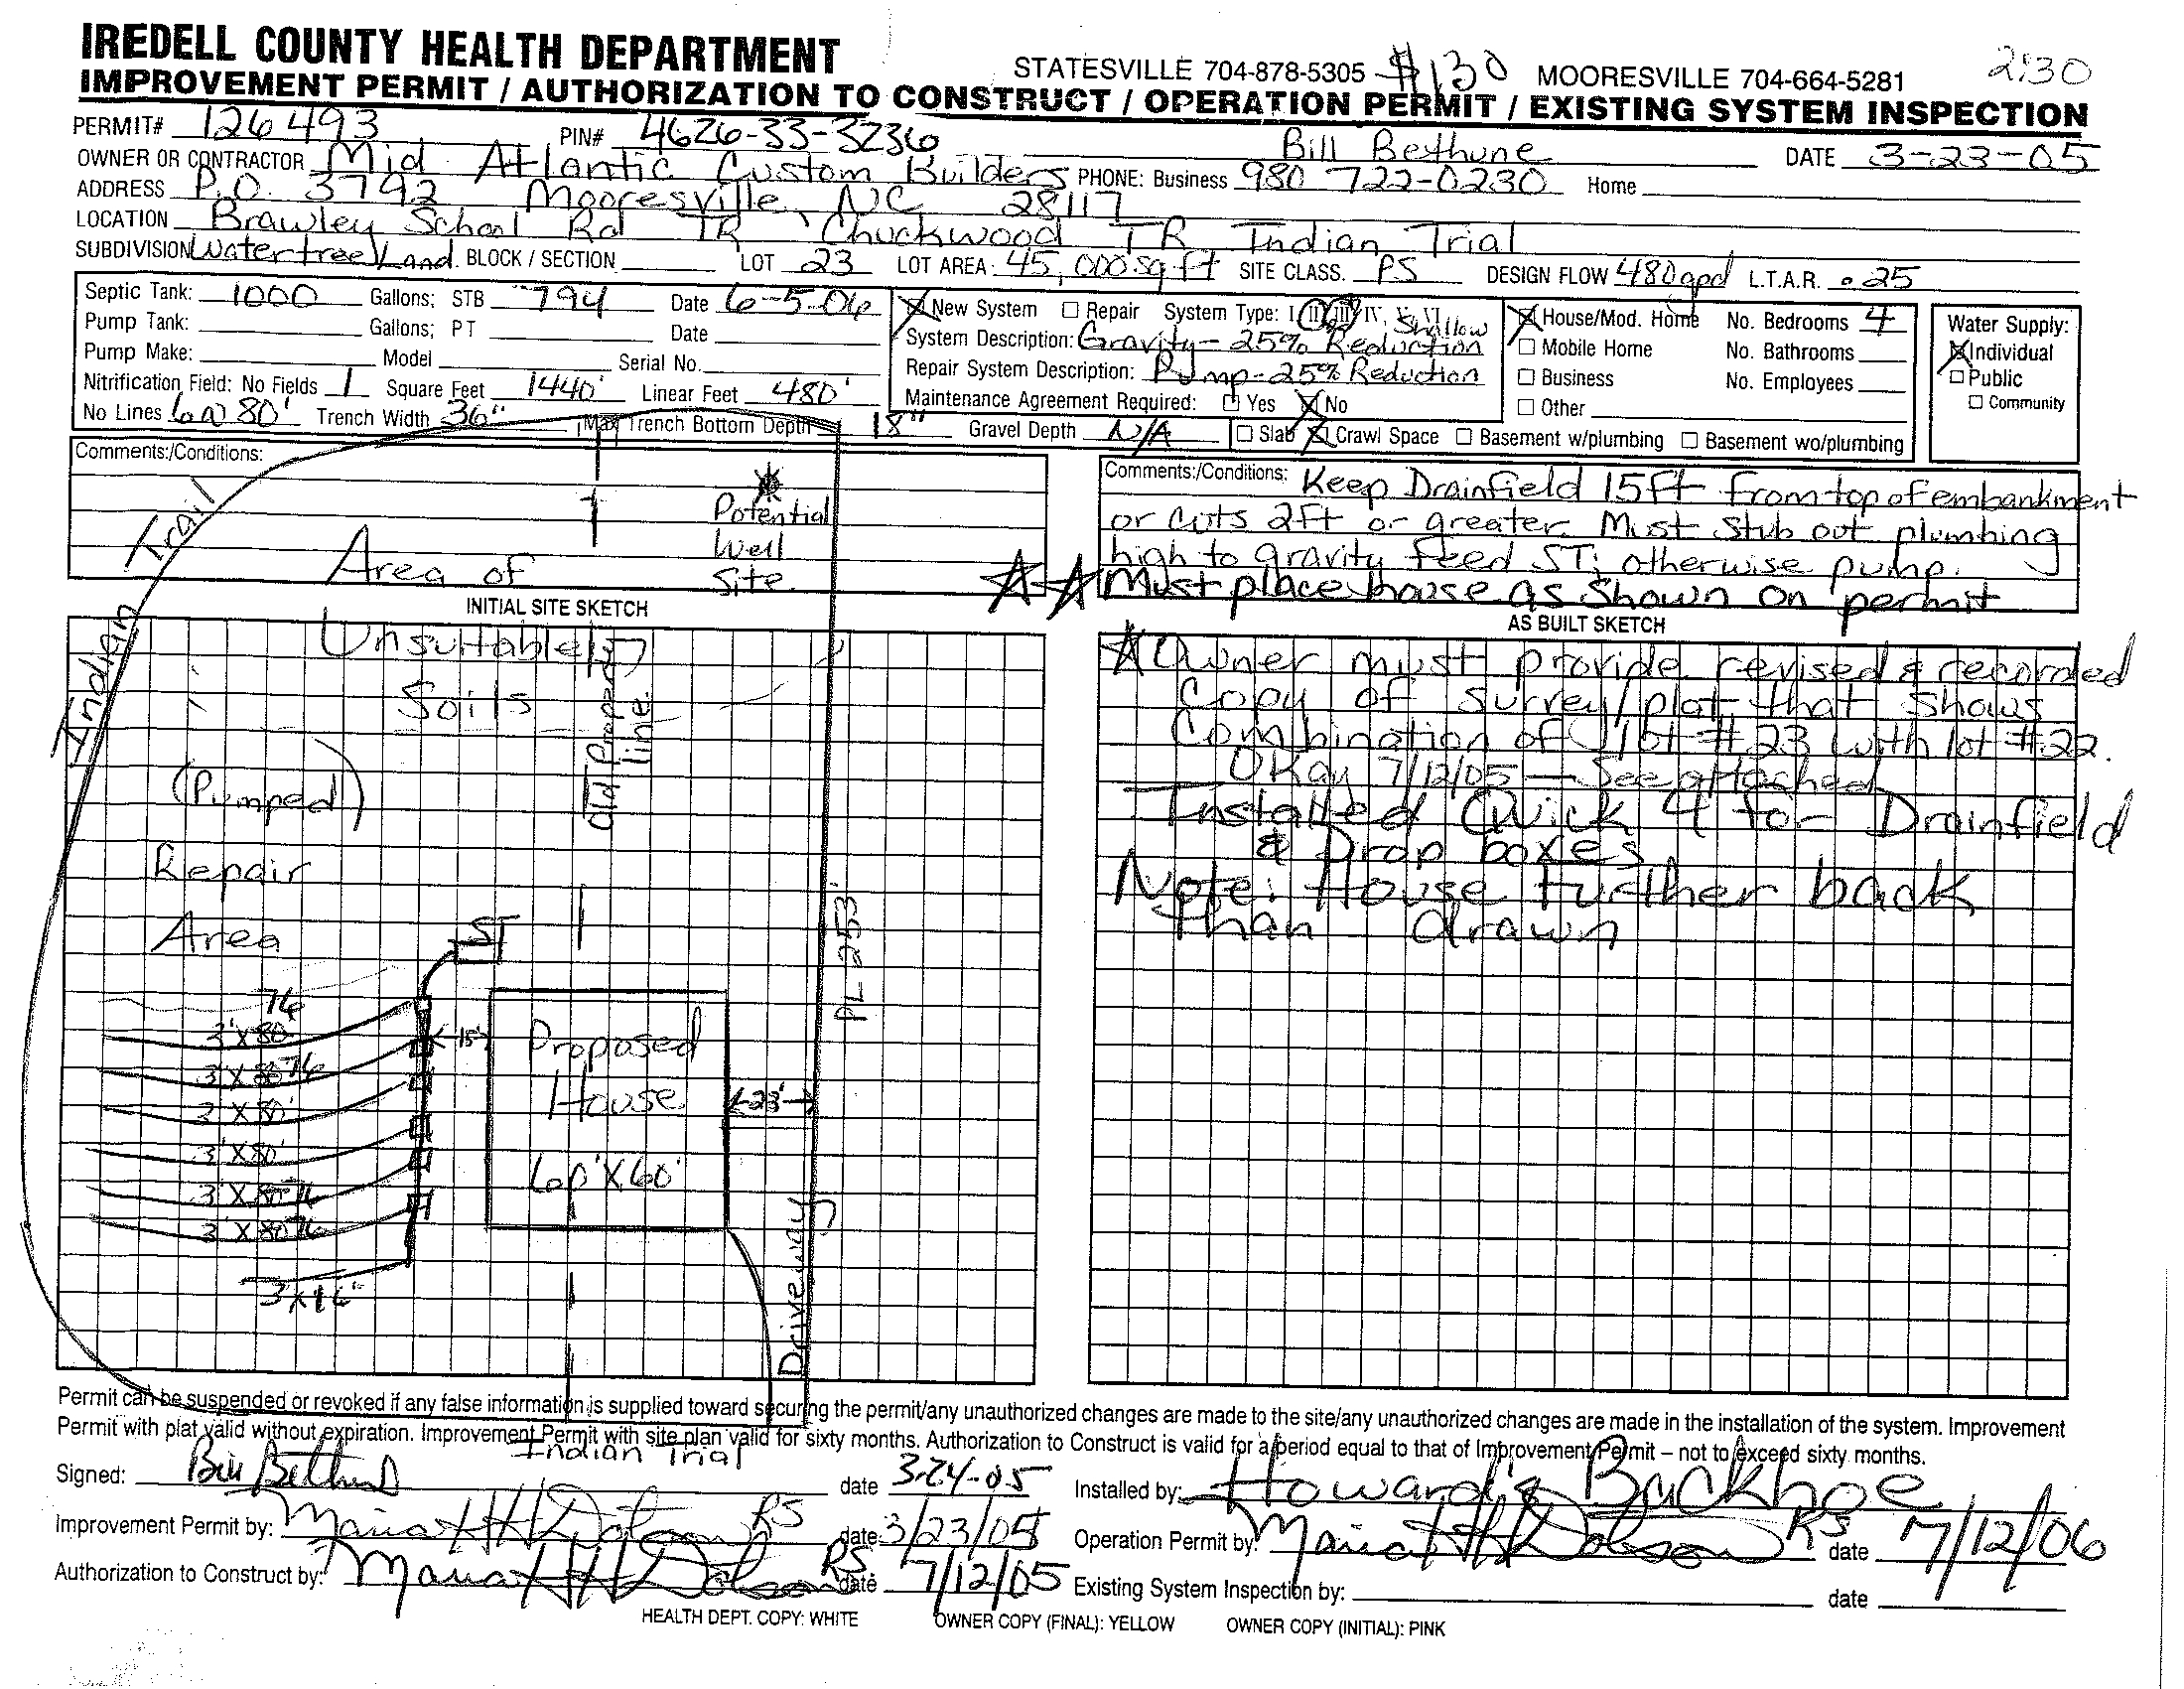 IREDELL COUNTY HEALTH DEPARTMENT
STATESVILLE 704-878-5305 $130 MOORESVILLE 704-664-5281 2:30
IMPROVEMENT PERMIT / AUTHORIZATION TO CONSTRUCT / OPERATION PERMIT / EXISTING SYSTEM INSPECTION
PERMIT# 126493 PIN# 4626-33-3236
OWNER OR CONTRACTOR Mid Atlantic Custom Builders Bill Bethune DATE 3-23-05
ADDRESS P.O. 3792 Mooresville, NC 28117 PHONE: Business 980 722-0230 Home
LOCATION Brawley School Rd TR Chuckwood TR Indian Trial
SUBDIVISION Watertree Land. BLOCK / SECTION LOT 23 LOT AREA: 45,000 sq ft SITE CLASS. PS DESIGN FLOW 480gpd L.T.A.R. .25
Septic Tank: 1000 Gallons; STB 794 Date 6-5-06
Pump Tank: Gallons; PT Date
Pump Make: Model Serial No.
Nitrification Field: No Fields 1 Square Feet 1440' Linear Feet 480'
No Lines 6@80' Trench Width 36" Max Trench Bottom Depth 18" Gravel Depth N/A
New System Repair System Type: I II III IV, V, VI
System Description: Gravity - 25% Reduction Shallow
Repair System Description: Pump - 25% Reduction
Maintenance Agreement Required: Yes No
House/Mod. Home No. Bedrooms 4
Mobile Home No. Bathrooms
Business No. Employees
Other
Slab Crawl Space Basement w/plumbing Basement wo/plumbing
Water Supply:
Individual
Public
Community
Comments:/Conditions:
Potential
Well
Site
Area of
Indian Trail
INITIAL SITE SKETCH
Unsuitable
Soils
Old Property
line
(Pumped)
Repair
Area
ST
76
3'X80
3'X80 76
3'X80'
3'X80'
3'X80 76
3'X80 76
3X16"
15'
Proposed
House
60'X60'
23'
PL-253'
Driveway
Indian Trial
Comments:/Conditions: Keep Drainfield 15ft from top of embankment
or cuts 2ft or greater. Must stub out plumbing
high to gravity feed ST; otherwise pump.
Must place house as shown on permit
AS BUILT SKETCH
Owner must provide revised & recorded
Copy of survey/plat that shows
Combination of lot #23 with lot #22.
Okay 7/12/05 - See attached
Installed Quick 4 for Drainfield
& Drop boxes
Note: House further back
than drawn
Permit can be suspended or revoked if any false information is supplied toward securing the permit/any unauthorized changes are made to the site/any unauthorized changes are made in the installation of the system. Improvement
Permit with plat valid without expiration. Improvement Permit with site plan valid for sixty months. Authorization to Construct is valid for a period equal to that of Improvement Permit – not to exceed sixty months.
Signed: Bill Bethune date 3-24-05 Installed by: Howard's Backhoe
Improvement Permit by: Maria H Dotson RS date 3/23/05 Operation Permit by: Maria H Dotson RS date 7/12/06
Authorization to Construct by: Maria H Dotson RS. date 7/12/05 Existing System Inspection by: date
HEALTH DEPT. COPY: WHITE OWNER COPY (FINAL): YELLOW OWNER COPY (INITIAL): PINK